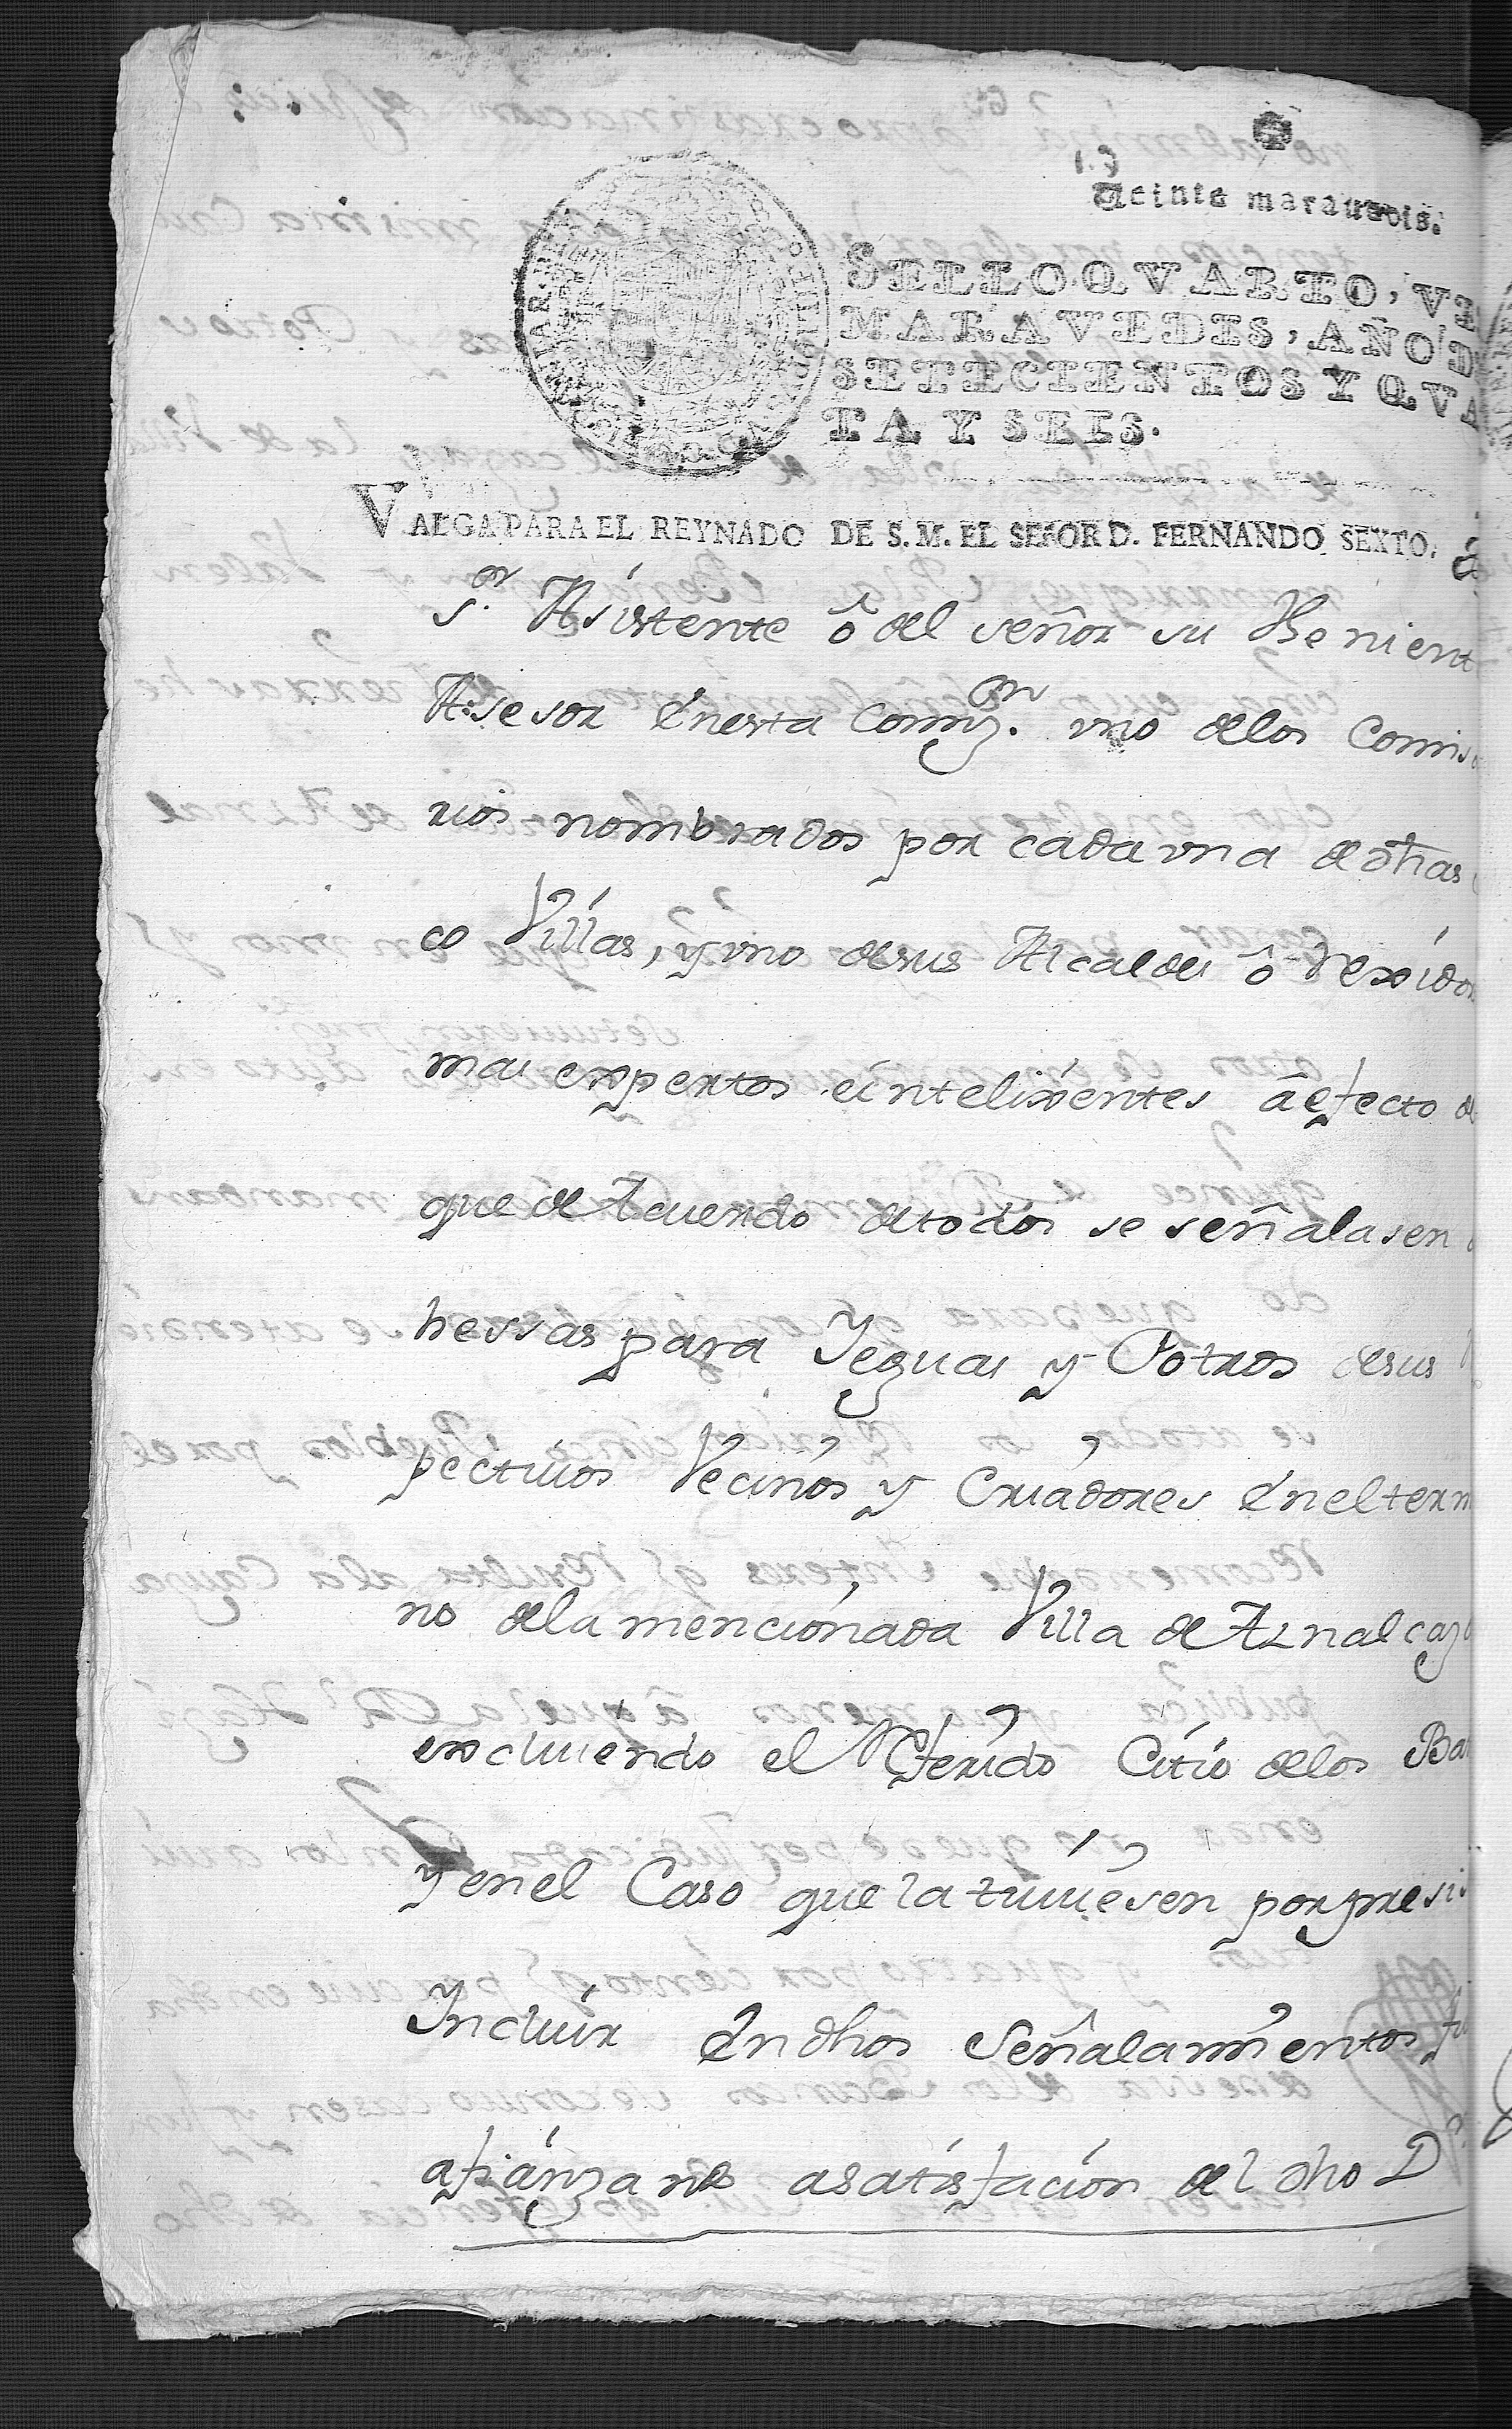 Veinte marauedis.
SELLO QVARTO, VE
MARAVEDIS, AÑO D
SETECIENTOS Y QVA
TA Y SEIS.
VALGA PARA EL REYNADO DE S. M. EL SEÑOR D. FERNANDO SEXTO.
s.or Asistente ô del señor su Thenient
Asesor Enesta Comiz.on vno delos Comisa
rios nombrados por cada vna de dhas
co Villas, y vno desus Alcaldes ô Rexidor
mas expertos eintelixentes â efecto de
que de Acuerdo detodos se señalasen
hessas para Yeguas y Potros desus
pectiuos Vecinos y Criadores Enel term
no dela mencionada Villa de Aznalcaz
excluiendo el Referido Citio delos Ba
y enel Caso que la tuuiesen por presis
Incluir En dhos Señalamientos fu
afianzando a satisfacion del dho D